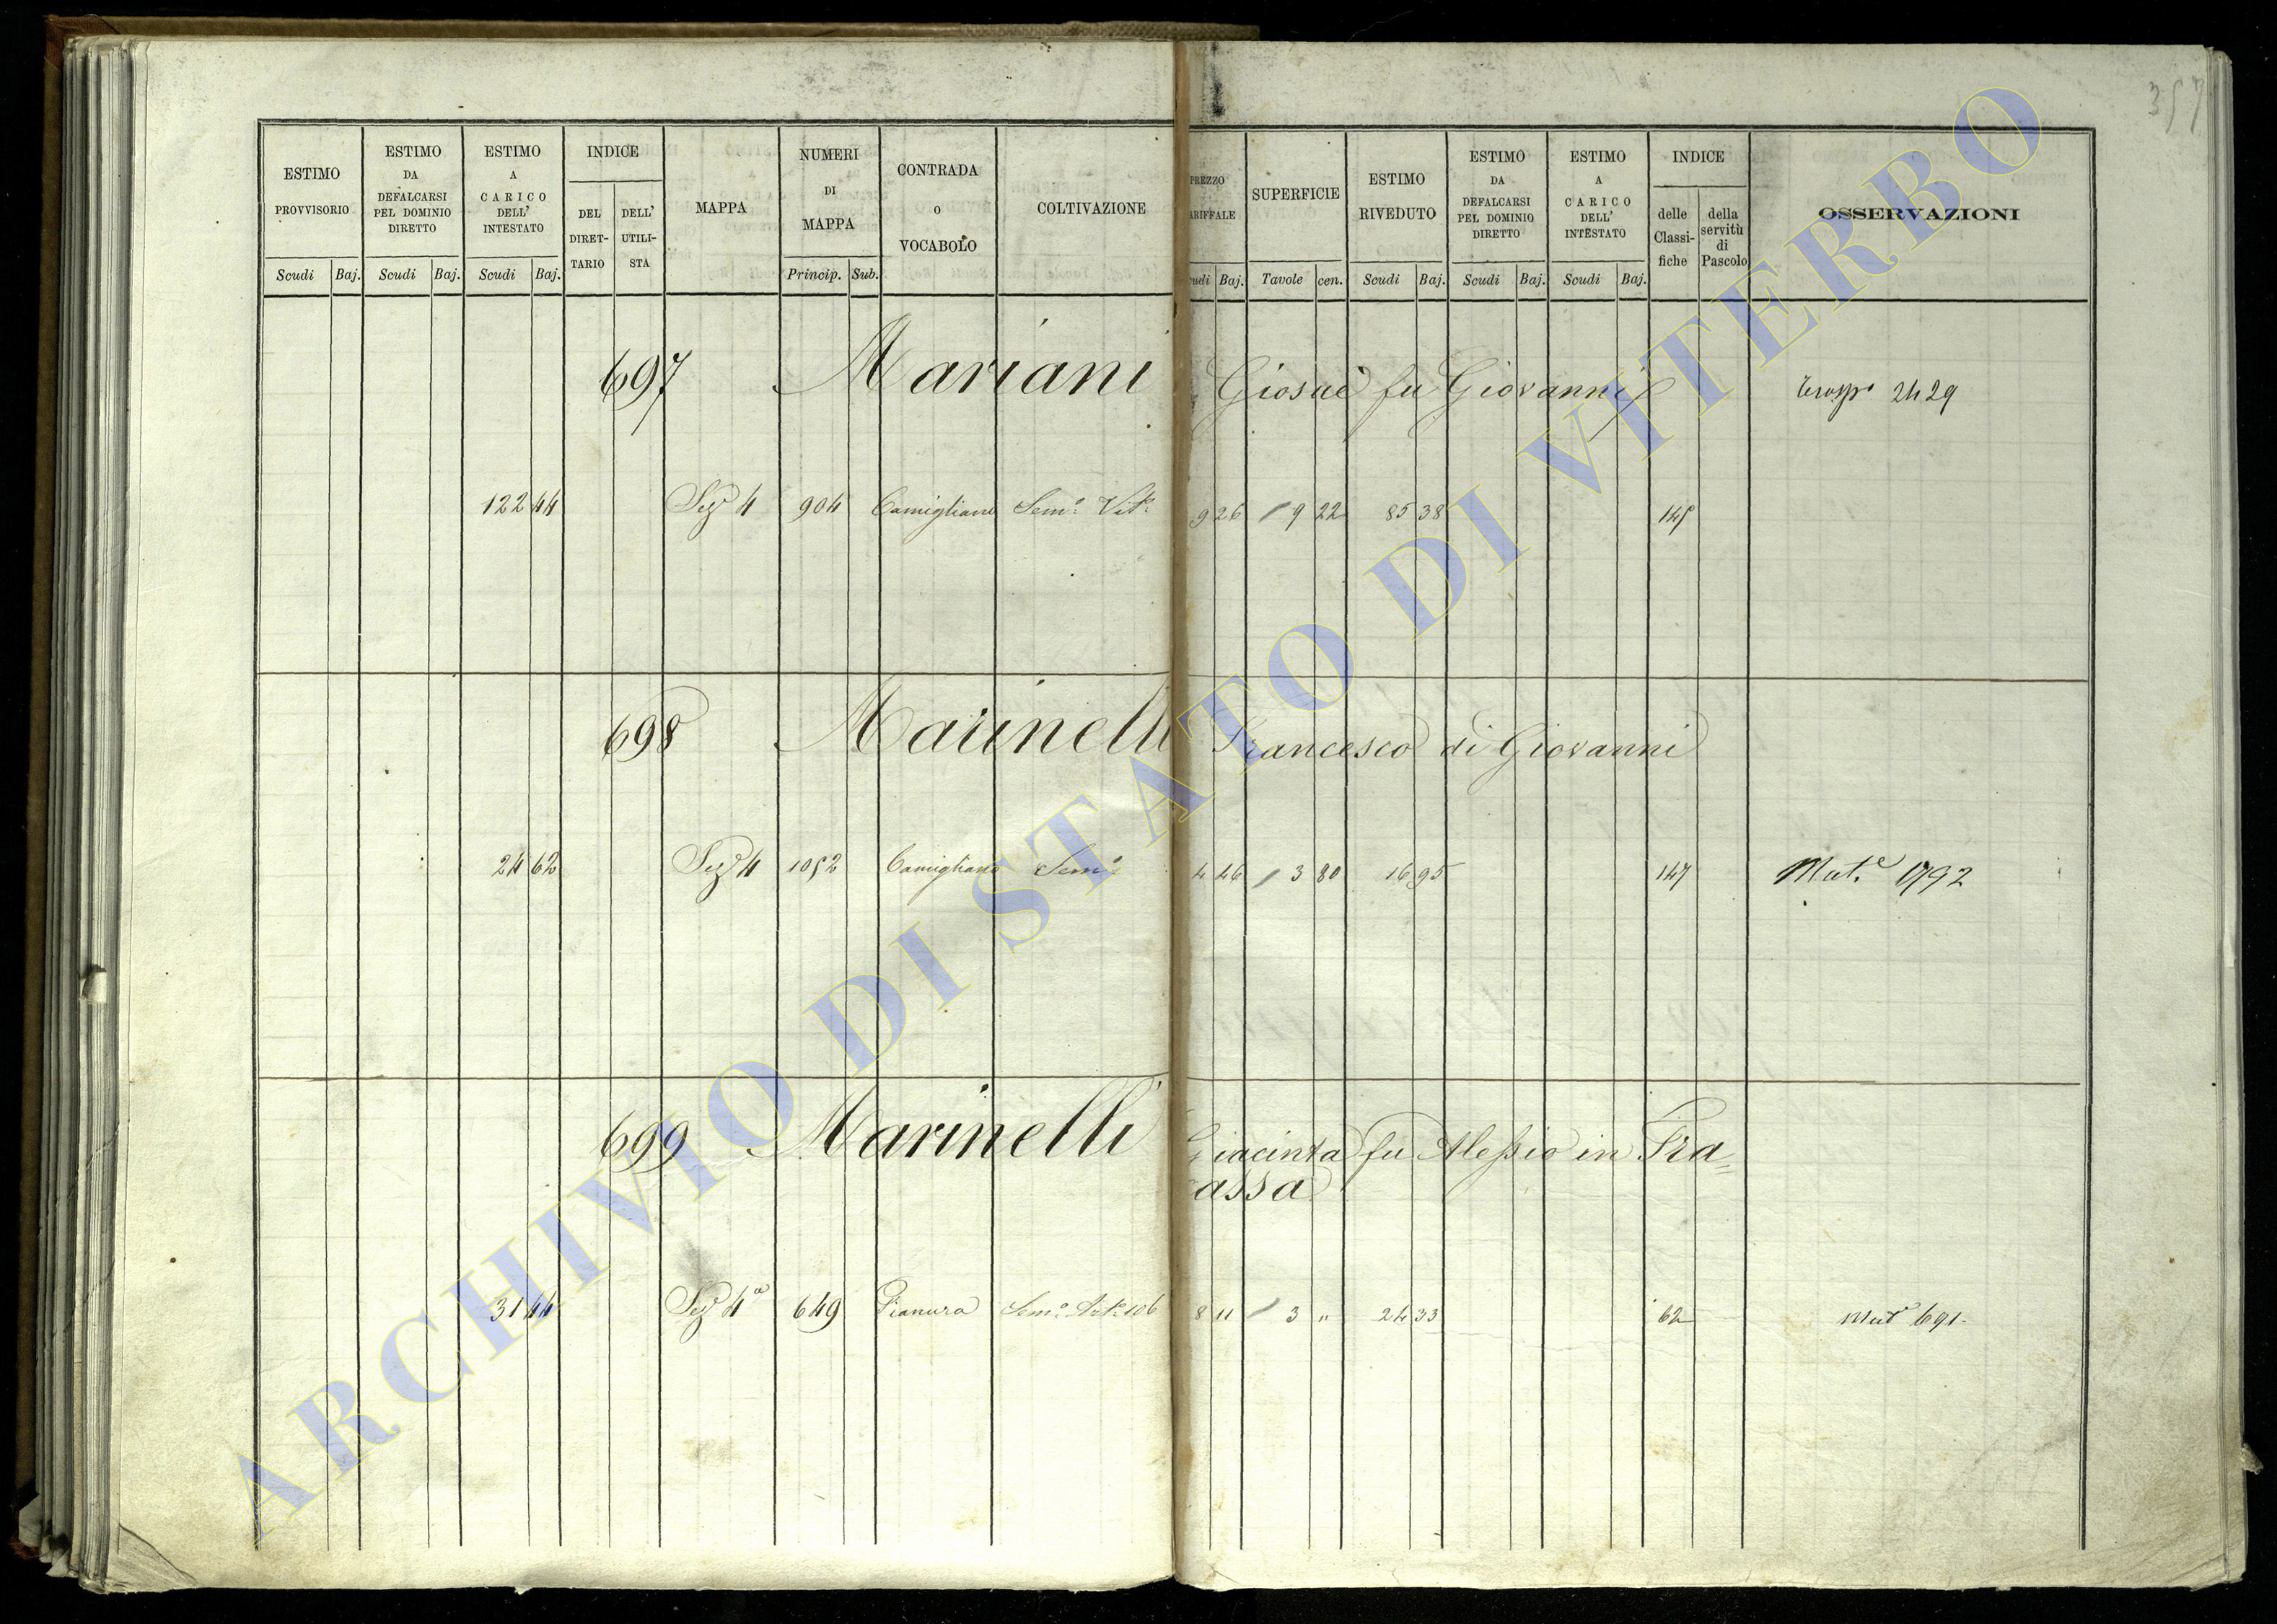 357
ESTIMO PROVVISORIO
ESTIMO DA DEFALCARSI PEL DOMINIO DIRETTO
ESTIMO A CARICO DELL' INTESTATO
INDICE
DEL DIRET-TARIO
DELL' UTILI-STA
MAPPA
NUMERI DI MAPPA
CONTRADA O VOCABOLO
COLTIVAZIONE
PREZZO
ARIFFALE
SUPERFICIE
ESTIMO RIVEDUTO
ESTIMO DA DEFALCARSI PEL DOMINIO DIRETTO
ESTIMO A CARICO DELL' INTESTATO
INDICE
delle Classi-fiche
della servitù di Pascolo
OSSERVAZIONI
Scudi Baj. Scudi Baj. Scudi Baj. Princip. Sub. udi Baj. Tavole cen. Scudi Baj. Scudi Baj. Scudi Baj.
697 Mariani Giosuè fu Giovanni 2429
122 44 Sez 4 904 Camigliano Sem.o Vit.o 9 26 9 22 85 38 145
698 Marinelli Francesco di Giovanni
24 62 Sez 4 1052 Camigliano Sem.o 4 46 3 80 16 95 147 Mut.e 1792
699 Marinelli Giacinta fu Alessio in Fra=
cassa
31 44 Sez 4a 649 Pianura Sem.o 8 11 3 " 24 33 62 Mut 691
ARCHIVIO DI STATO DI VITERBO